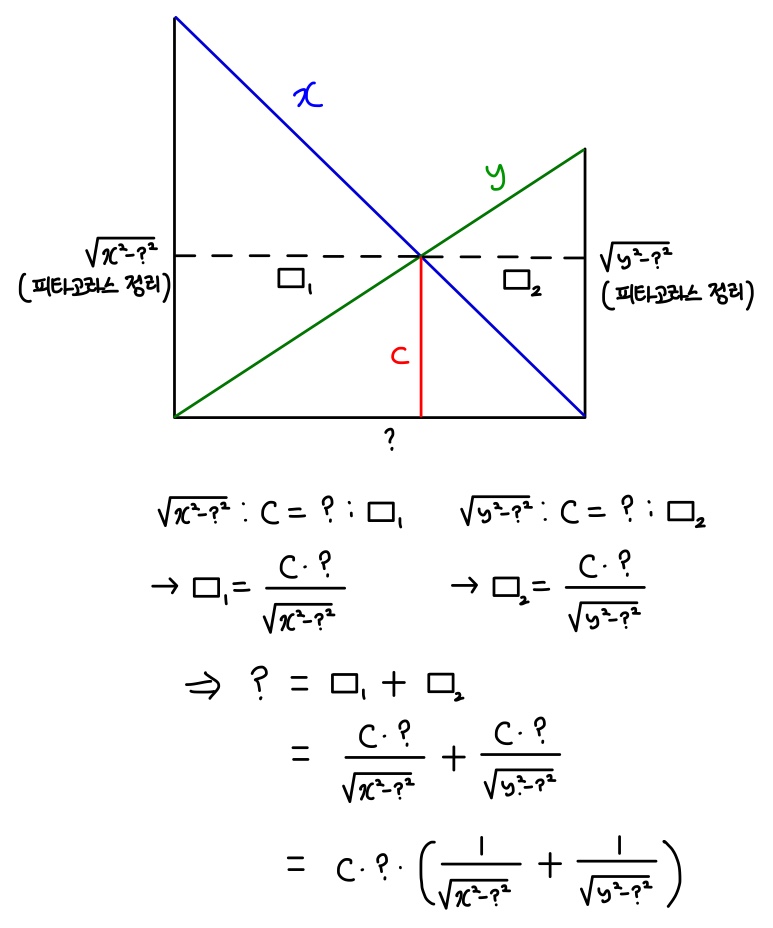 x
y
√x²-?²
(피타고라스 정리)
□₁
□₂
√y²-?²
(피타고라스 정리)
C
?
√x²-?² : C = ? : □₁
√y²-?² : C = ? : □₂
→ □₁ = C·? / √x²-?²
→ □₂ = C·? / √y²-?²
⇒ ? = □₁ + □₂
= C·? / √x²-?² + C·? / √y²-?²
= C·?·(1 / √x²-?² + 1 / √y²-?²)